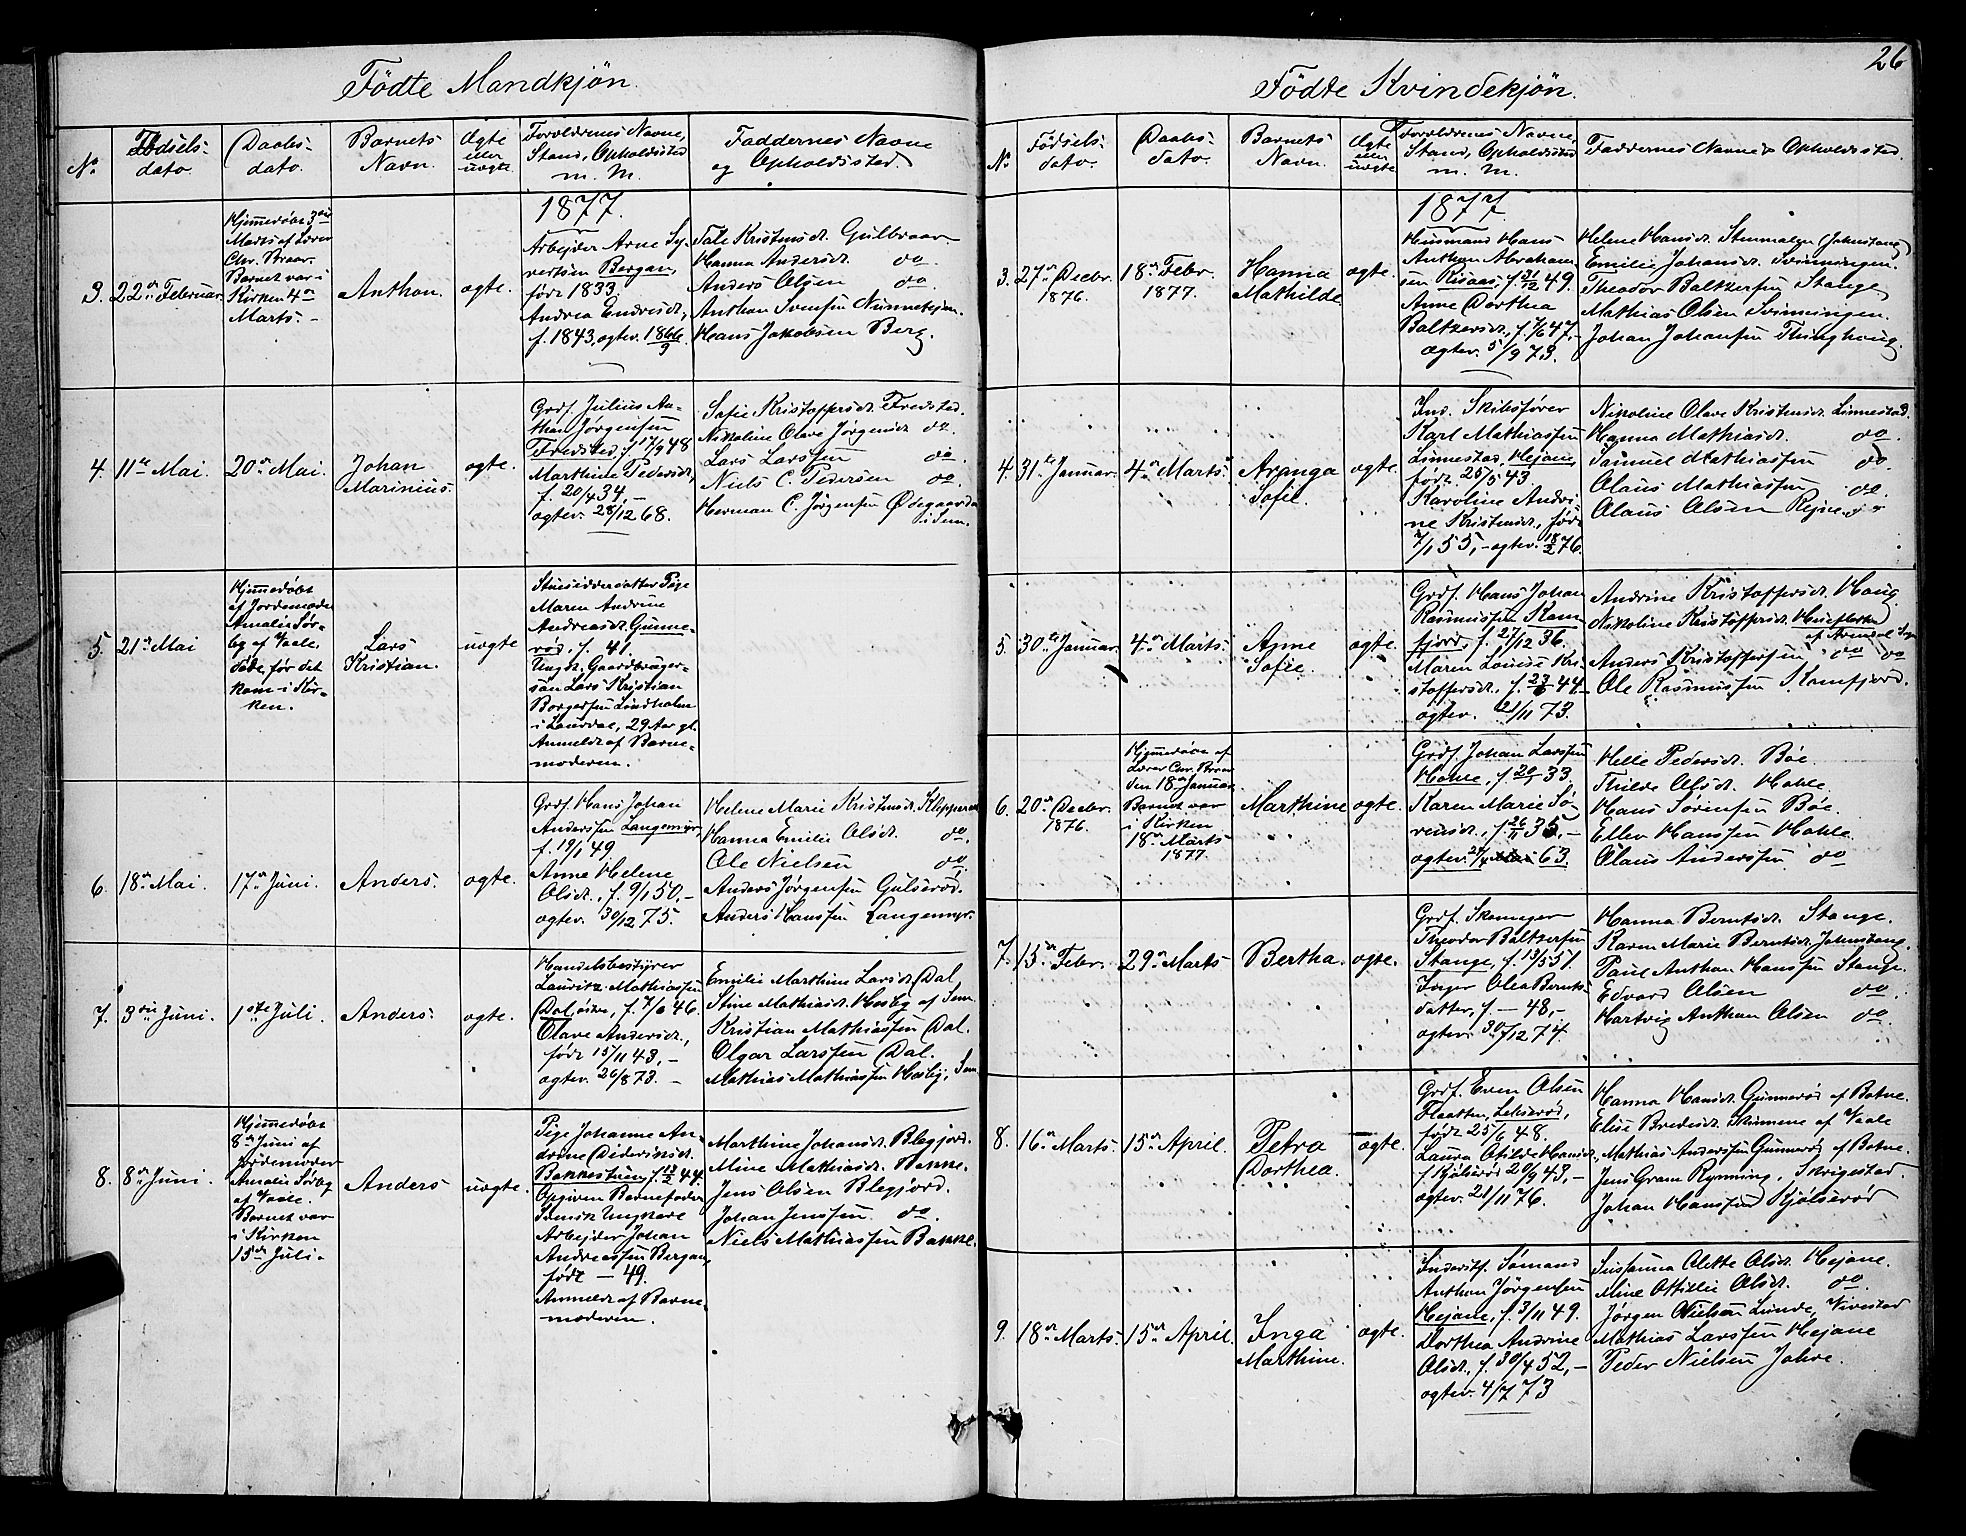 26
Födte Mandkjøn.
No
Fødselsdato.
Daabsdato.
Barnets Navn.
Ægte eller uægte
Forældrenes Navne, Stand, Opholdssted m. M.
Faddernes Navne og Opholdssted.
1877.
3.
22de Februar
Hjemmedøbt 3die
Marts af Lærer
Chr. Braar.
Barnet var i
Kirken 4de
Marts. -
Anthon.
ægte.
Arbeider Arne Sy-
vertsen Bergan,
født 1833.
Andrea Endresdt.,
f. 1843, ægtev. 1866/9
Tale Kristensdt. Gulbraar
Hanna Andersdt. do.
Anders Olsen do.
Anthon Svensen Nunnetejen.
Hans Jakobsen Berg.
4.
11te Mai.
20de Mai.
Johan
Marinius.
ægte.
Grdf. Julius An-
thon Jørgensen
Fredsted, f. 17/9 48
Marthine Pedersdt,
f. 20/4 34, -
ægtev. 28/12 68.
Sofie Kristoffersdt. Fredsted.
Nikoline Olave Jørgensdt. do.
Lars Larssen do.
Niels C. Pedersen do.
Herman C. Jørgensen Ødegaarden
i Sem.
5.
21de Mai
Hjemmedøbt
af Jordemoder
Amalie Sør-
by af Vaale.
døde før det
kom i Kir-
ken.
Lars
Kristian.
uægte
Stuesidderdatter Pige
Maren Andrine
Andreasdt. Gunne-
rød, f. 41.
Ungk. Gaardbruger-
søn Lars Kristian
Borgersen Lindholm
i Laurdal, 29 Aar gl.
Anmeldt af Barne-
moderen.
6.
18de Mai.
17de Juni.
Anders.
ægte.
Grdf. Hans Johan
Anderssen Langemyr,
f. 19/1 49
Anne Helene
Olsdt., f. 9/1 50, -
ægtev. 30/12 75.
Helene Marie Kristensdt. Klepperen
Hanna Emilie Olsdt. do.
Ole Nielsen do.
Anders Jørgensen Gulserød.
Anders Hanssen Langemyr.
7.
3die Juni.
1ste Juli.
Anders.
ægte.
Handelsbestyrer
Lauritz Mathiassen
Dal, f. 7/6 46.
Olave Andersdt.,
født 15/11 43, -
ægtev. 26/8 73. -
Emilie Marthine Larsdt. Dal
Stine Mathiasdt. Hesby af Sem
Kristian Mathiassen Dal.
Olgar Larssen Dal.
Mathias Mathiassen Hesby, Sem
8.
8de Juni.
Hjemmedøbt
8de Juni af
Jordemoder
Amalie Sørby
af Vaale.
Barnet var
i Kirken
15de Juli.
Anders
uægte.
Pige Johanne An-
drine Dideriksdt.
Bakkestuen, f. 13/2 44.
Opgiven Barnefader
Svensk Ungkarl
Arbejder Johan
Andreassen Bergan,
født - 49.
Anmeldt af Barne-
moderen.
Marthine Johansdt. Blegjord.
Mine Mathiasdt. Bakke.
Jens Olsen Blegjord.
Johan Jenssen. do.
Niels Mathiassen Bakke.
Födte Kvindekjøn.
No
Födsels-
dato.
Daabs-
dato.
Barnets
Navn.
Ægte
eller
uægte
Forældrenes Navne,
Stand, Opholdssted
m. M.
Faddernes Navne & Opholdssted.
1877.
3.
27de Decbr.
1876.
18de Febr.
1877.
Hanna
Mathilde.
ægte.
Husmand Hans
Anthon Abraham-
sen Risaas, f. 21/12 49.
Anne Dorthea
Baltzersdt., f. 7/6 47, -
ægtev. 5/9 73.
Helene Hansdt. Stenmalen (Johnstang)
Emilie Johansdt. Svinningen.
Theodor Baltzersen Stange
Mathias Olsen Svinningen.
Johan Johansen Thinghoug.
4.
31te Januar.
4de Marts.
Aranga
Sofie.
ægte.
Ind. Skibsfører
Karl Mathiassen
Linnestad, Hejane,
født 25/5 43.
Karoline Andri-
ne Kristensdt., født
7/1 55, - ægtev. 18/2 76.
Nikoline Olave Kristensdt. Linnestad.
Hanna Mathiasdt. do.
Samuel Mathiassen do.
Claus Mathiassen do.
Claus Olsen Rejne. do
5.
30te Januar.
4de Marts.
Anne
Sofie.
ægte.
Grdf. Hans Johan
Rasmussen Kam-
fjord, f. 27/12 36.
Maren Lovise Kri-
stoffersdt., f. 23/6 44 -
ægtev. 21/11 73.
Andrine Kristoffersdt. Houg.
Nikoline Kristoffersdt.
af Arendal
Anders Kristoffersen do do
Ole Rasmussen Kamfjord.
6.
20de Decbr.
1876.
Hjemmedøbt af
Lærer Chr. Braar
den 18de Januar
Barnet var
i Kirken
18de Marts
1877.
Marthine
ægte.
Grdf. Johan Larssen
Hotle, f. 20/1 33.
Karen Marie Sø-
rensdt., f. 26/11 35, -
ægtev. 63.
Helle Pedersdt. Bøe.
Thilde Olsdt. Hotle.
Hans Sørensen Bøe.
Ellev Hanssen Hotle.
Claus Anderssen do
7.
15de Febr.
29de Marts
Bertha.
ægte.
Grdf. Skomager
Theodor Baltzersen
Stange, f. 13/5 51.
Inger Olea Bernts-
datter, f. - 48, -
ægtev. 30/12 74.
Hanna Berntsdt. Stange.
Karen Marie Berntsdt. Johnstang.
Paul Anthon Hanssen Stange.
Edvard Olsen do.
Hartvig Anthon Olsen do.
8.
16de Marts.
15de April.
Petra
Dorthea.
ægte.
Grdf. Even Olsen
Flaatten, Lekserød,
født 25/6 48.
Laura Otilde Hansdt.,
f. Kjølserød 20/9 43, -
ægtev. 21/11 76.
Hanna Hansdt. Gunnerød af Botne.
Elise Bredesdt. Skinnene af Vaale
Mathias Anderssen Gunnerød af Botne.
Jens Gram Rynning, Skrigestad
Johan Hanssen Kjølserød
9.
18de Marts.
15de April.
Inga
Marthine.
ægte.
Inderstf. Sømand
Anthon Jørgensen
Hejane, f. 3/11 49.
Dorthea Andrine
Olsdt., f. 30/4 52, -
ægtev. 4/7 73
Susanna Olette Olsdt. Hejane.
Mine Ottilie Olsdt. do
Jørgen Nielsen Lunde, Vivestad
Mathias Larssen Hejane
Peder Nielsen Jahre.